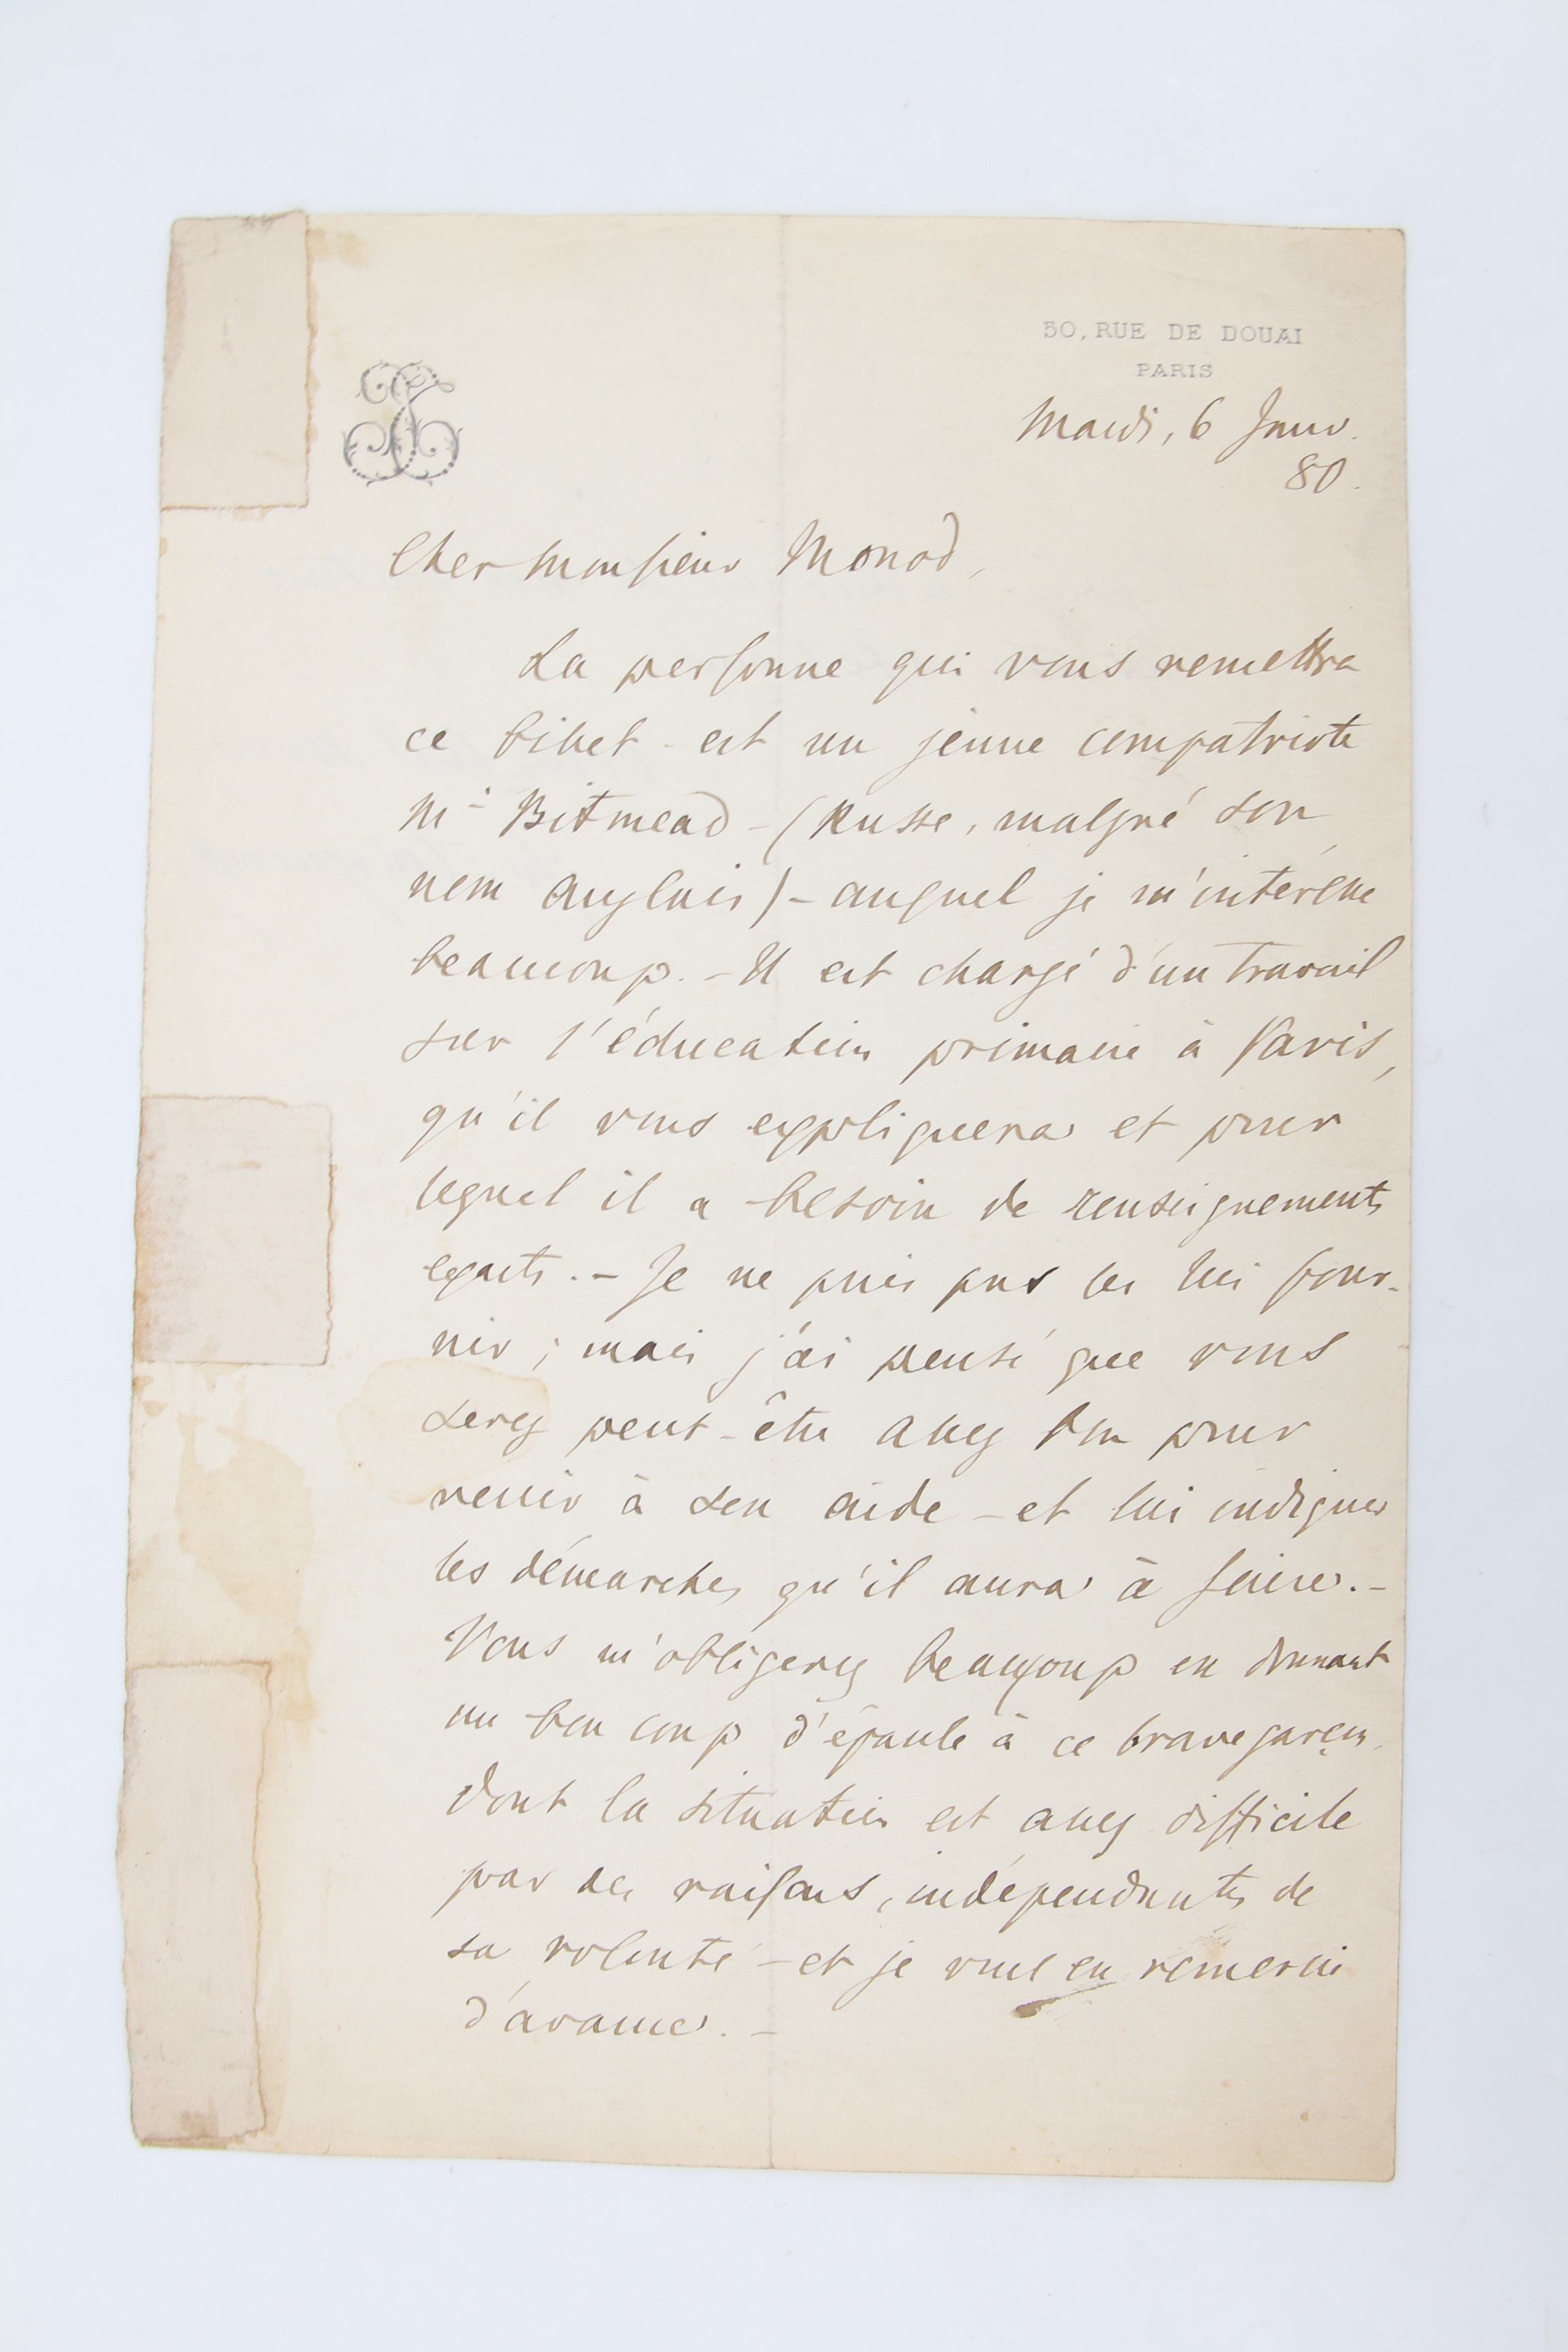 50, RUE DE DOUAI
PARIS
Mardi, 6 Janv.
80.
Cher Monsieur Monod,
La personne qui vous remettra
ce billet - est un jeune compatriote
Mr Bitmead - (Russe, malgré son
nom anglais) - auquel je m'intéresse
beaucoup. - Il est chargé d'un travail
sur l'éducation primaire à Paris,
qu'il vous expliquera et pour
lequel il a besoin de renseignements
exacts. - Je ne puis pas les lui four-
nir ; mais j'ai pensé que vous
serez peut-être assez bon pour
venir à son aide - et lui indiquer
les démarches qu'il aura à faire. -
Vous m'obligerez beaucoup en donnant
un bon coup d'épaule à ce brave garçon,
dont la situation est assez difficile
par des raisons, indépendantes de
sa volonté - et je vous en remercie
d'avance. -